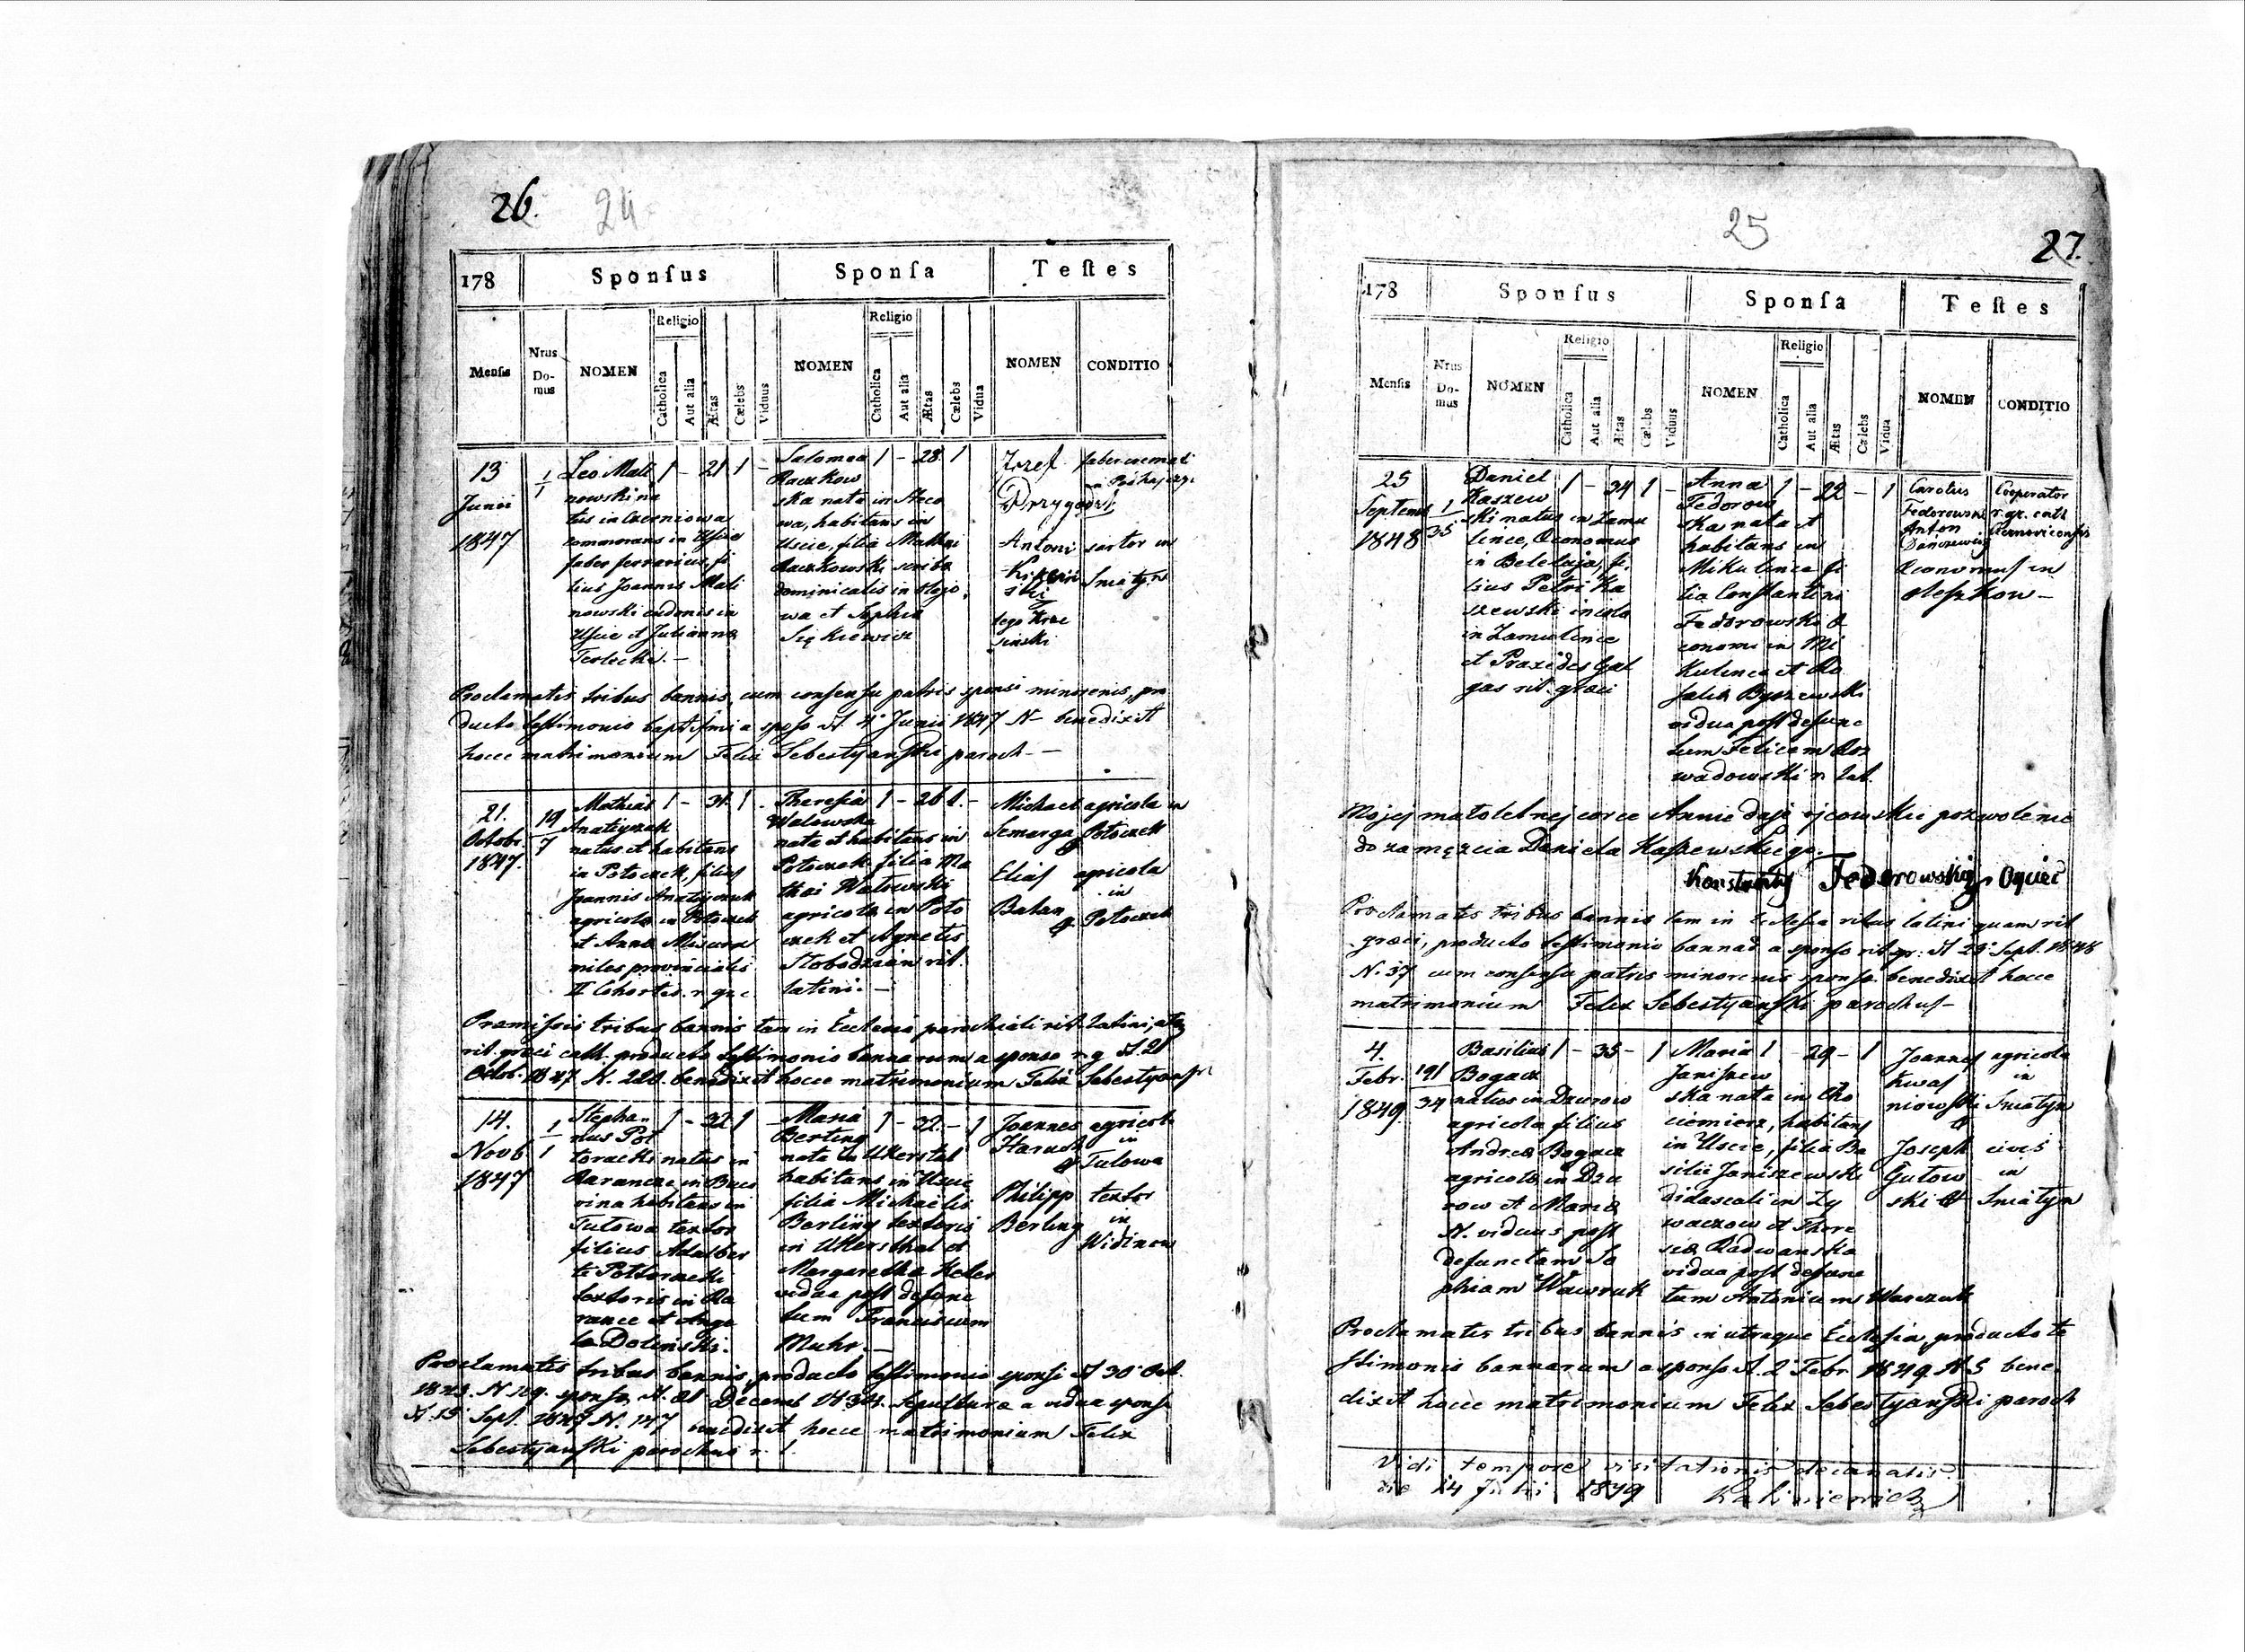 26. 24
178 Sponſus Sponſa Teſtes
Menſis Nrus Do- mus NOMEN Religio Catholica Aut alia Ætas Cælebs Viduus NOMEN Religio Catholica Aut alia Ætas Cælebs Vidua NOMEN CONDITIO
13
Junii
1847
1/1
Leo Mali
nowski na
tus in Czerniowa
commorans in Uście
faber ferrarius, fi
lius Joannis Mali
nowski in
Uście et Julianna
Terlecki. —
1 – 21 1 –
Salomea
Raczkow
ska nata in
wa, habitans in
Uscie, filia Mathei
Raczkowski scriba
dominicalis in
wa et Sophia
1 – 28 1
Jozef
Przygodzk
Antoni sartor in
Sniatyn
Proclamatis tribus bannis, cum consensu patris sponsi minorenis, pro
ducto testimonio baptismi a sponso d. 4 Junii 1847 N– benedixit
hocce matrimonium Felix Sebestyanski paroch. —
21.
Octobr.
1847.
19/7
Mathias
Anatiyczuk
natus et habitans
in Potoczek, filius
Joannis Anatiyczuk
agricola in Potoczek
et Anna
miles provincialis
II Cohortis. r. gr. c
1 – 31. 1 –
Theresia
Walowska
nata et habitans in
Potoczek filia Ma
thei Walowski
agricola in Poto
czek et Agnetis
Slobodzian rit.
latini. —
1 – 26 1. –
Michael agricola in
Semarga Potoczek
Elias agricola
in
Balan Potoczek
Premissis tribus bannis tam in Ecclesia parochiali rit. latini, atq
rit. graeci cath. producto testimonio bannarum a sponso r. g. d. 21
Octob. 1847 N. 220. benedixit hocce matrimonium Felix Sebestyanski
14.
Novb
1847
1/1
Stepha
nus Pół
toracki natus in
Rarancze in Buco
vina habitans in
Tulowa textor
filius Adalber
ti Półtoracki
textoris in Ra
rance et Ange
la Dolinski.
1 – 32 1 –
Maria
Berling
nata in Ukerstal
habitans in Uscie
filia Michaelis
Berling textoris
in Ukersthal et
Margaretha Keler
vidua post defunc
tum Franciscum
Muhr. —
1 – 22. – 1
Joannes agricola
Haruch in
Tulowa
Philipp textor
Berling in
Widinow
Proclamatis tribus bannis, producto testimonio sponsi d. 30 Oct.
sponsa d. 21 Decemb 1834. sepultura a vidua sponsa
d. 15 Sept. 1847 N. 147 benedixit hocce matrimonium Felix
Sebestyanski parochus r. l.
25 27.
178 Sponſus Sponſa Teſtes
Menſis Nrus Do- mus NOMEN Religio Catholica Aut alia Ætas Cælebs Viduus NOMEN Religio Catholica Aut alia Ætas Cælebs Vidua NOMEN CONDITIO
25
Septemb
1848
1/35
Daniel
Kaszew
ski natus in Zamu
lince, Œconomus
in Beleluja, fi.
lius Petri Ka
szewski incola
in Zamulince
et Praxedes Gal
gas rit. graeci
1 – 34 1 –
Anna
Fedorow
ska nata et
habitans in
Mikulince fi
lia Constantini
Fedorowski Œ
conomi in Mi
kulince et Ro
salia Byszewski
vidua post defunc
tum Felicem Roz
wadowski r. lat.
1 – 22 – 1
Carolus Cooperator
Fedorowski r. gr. cath
Anton Czernovicensis
Œconomus in
Oleszkow —
Mojej małoletnej corce Annie daję ojcowskie pozwolenie
do zamęzcia Daniela Kaszewskiego.
Konstanty Fedorowski, Oyciec
Proclamatis tribus bannis tam in Eclesia ritus latini quam rit
graeci, producto testimonio bannar. a sponso rit. gr: d. 23 Sept. 1848
N. 37 cum consensu patris minorenis sponsa. benedixit hocce
matrimonium Felix Sebestyanski parochus —
4.
Febr.
1849.
191/34
Basilius
Bogacz
natus in Dzurow
agricola filius
Andrea Bogacz
agricola in Dzu
row et Maria
N. viduus post
defunctam So
phiam Wawruk
1 – 35 – 1
Maria
Janiszew
ska nata in Cho
cimierz, habitans
in Uscie, filia Ba
silii Janiszewski
didascali in Ży
waczow et There
sia Radwanska
vidua post defunc
tum Antonium Warczuk
1 – 29 – 1
Joannes agricola
Kwas in
niowski Sniatyn
Joseph civis
Gutow in
ski Sniatyn
Proclamatis tribus bannis in utraque Ecclesia, producto te
stimonio bannarum a sponso d. 2 Febr. 1849. N 5 bene
dixit hocce matrimonium Felix Sebestyanski paroch
Vidi tempore visitationis decanalis
die 14 Julii 1849 Kaliniewicz